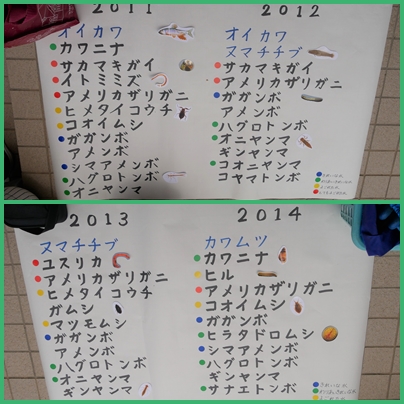 2011
オイカワ
カワニナ
サカマキガイ
イトミミズ
アメリカザリガニ
ヒメタイコウチ
コオイムシ
ガガンボ
アメンボ
シマアメンボ
ハグロトンボ
オニヤンマ
2012
オイカワ
ヌマチチブ
サカマキガイ
アメリカザリガニ
ガガンボ
アメンボ
ハグロトンボ
オニヤンマ
ギンヤンマ
コオニヤンマ
コヤマトンボ
2013
ヌマチチブ
ユスリカ
アメリカザリガニ
ヒメタイコウチ
ガムシ
マツモムシ
ガガンボ
アメンボ
ハグロトンボ
オニヤンマ
ギンヤンマ
2014
カワムツ
カワニナ
ヒル
アメリカザリガニ
コオイムシ
ガガンボ
ヒラタドロムシ
シマアメンボ
ハグロトンボ
ギンヤンマ
サナエトンボ